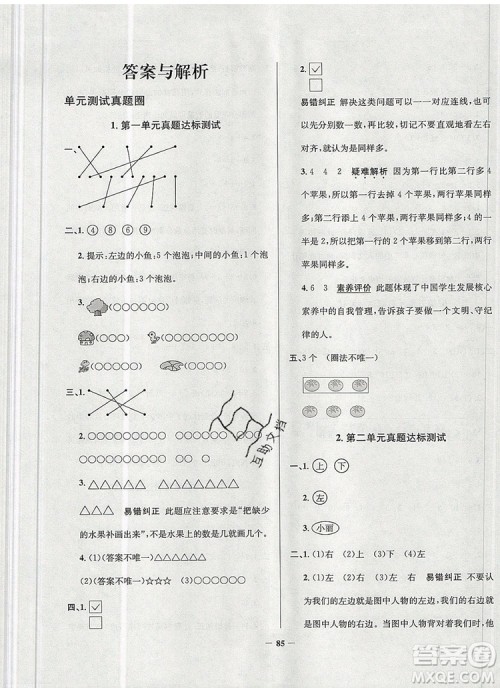 答案与解析
单元测试真题圈
1. 第一单元真题达标测试
一、
二、1. ④ ⑧ ⑥ ⑨
2. 提示：左边的小鱼：5 个泡泡；中间的小鱼：3 个泡
泡；右边的小鱼：5 个泡泡。
3.
三、1.
2. ○○○○○○ ○○○○○○○○
3. △△△△△△ △△△△△△△△
△△△△ 易错纠正 此题应注意要求是“把缺少
的水果补画出来”，不要重新画出所有水果。
4. (1)(答案不唯一)△△△△△
(2)(答案不唯一)☆☆☆
四、1. ☑
□
2. ☑
□
易错纠正 解决这类问题可以一一对应连线，也可
以先分别数一数，再比较，切忌不要直观地看左右
对齐，就认为是同样多。
3. 4 4 2 疑难解析 因为第一行比第二行多 4
个苹果，所以第一行去掉 4 个苹果，两行苹果同样
多；第二行添上 4 个苹果，两行苹果同样多；4 的一
半是 2，所以把第一行的 2 个苹果移到第二行，两
行苹果同样多。
4. 6 3 素养评价 此题体现了中国学生发展核心
素养中的自我管理，告诉孩子要做一个文明、守纪
律的人。
五、3 个 (圈法不唯一)
2. 第二单元真题达标测试
一、1. 上 下
2. 左
3. 小丽
二、1. (1)右 (2)上 (3)下 (4)左
2. (1)左 右 (2)右 左 易错纠正 不要认
为我们的左边就是图中人物的左边，我们的右边就
是图中人物的右边。其实当我们与图中人物面对
85
互助文档
答案圈
MXQE.COM